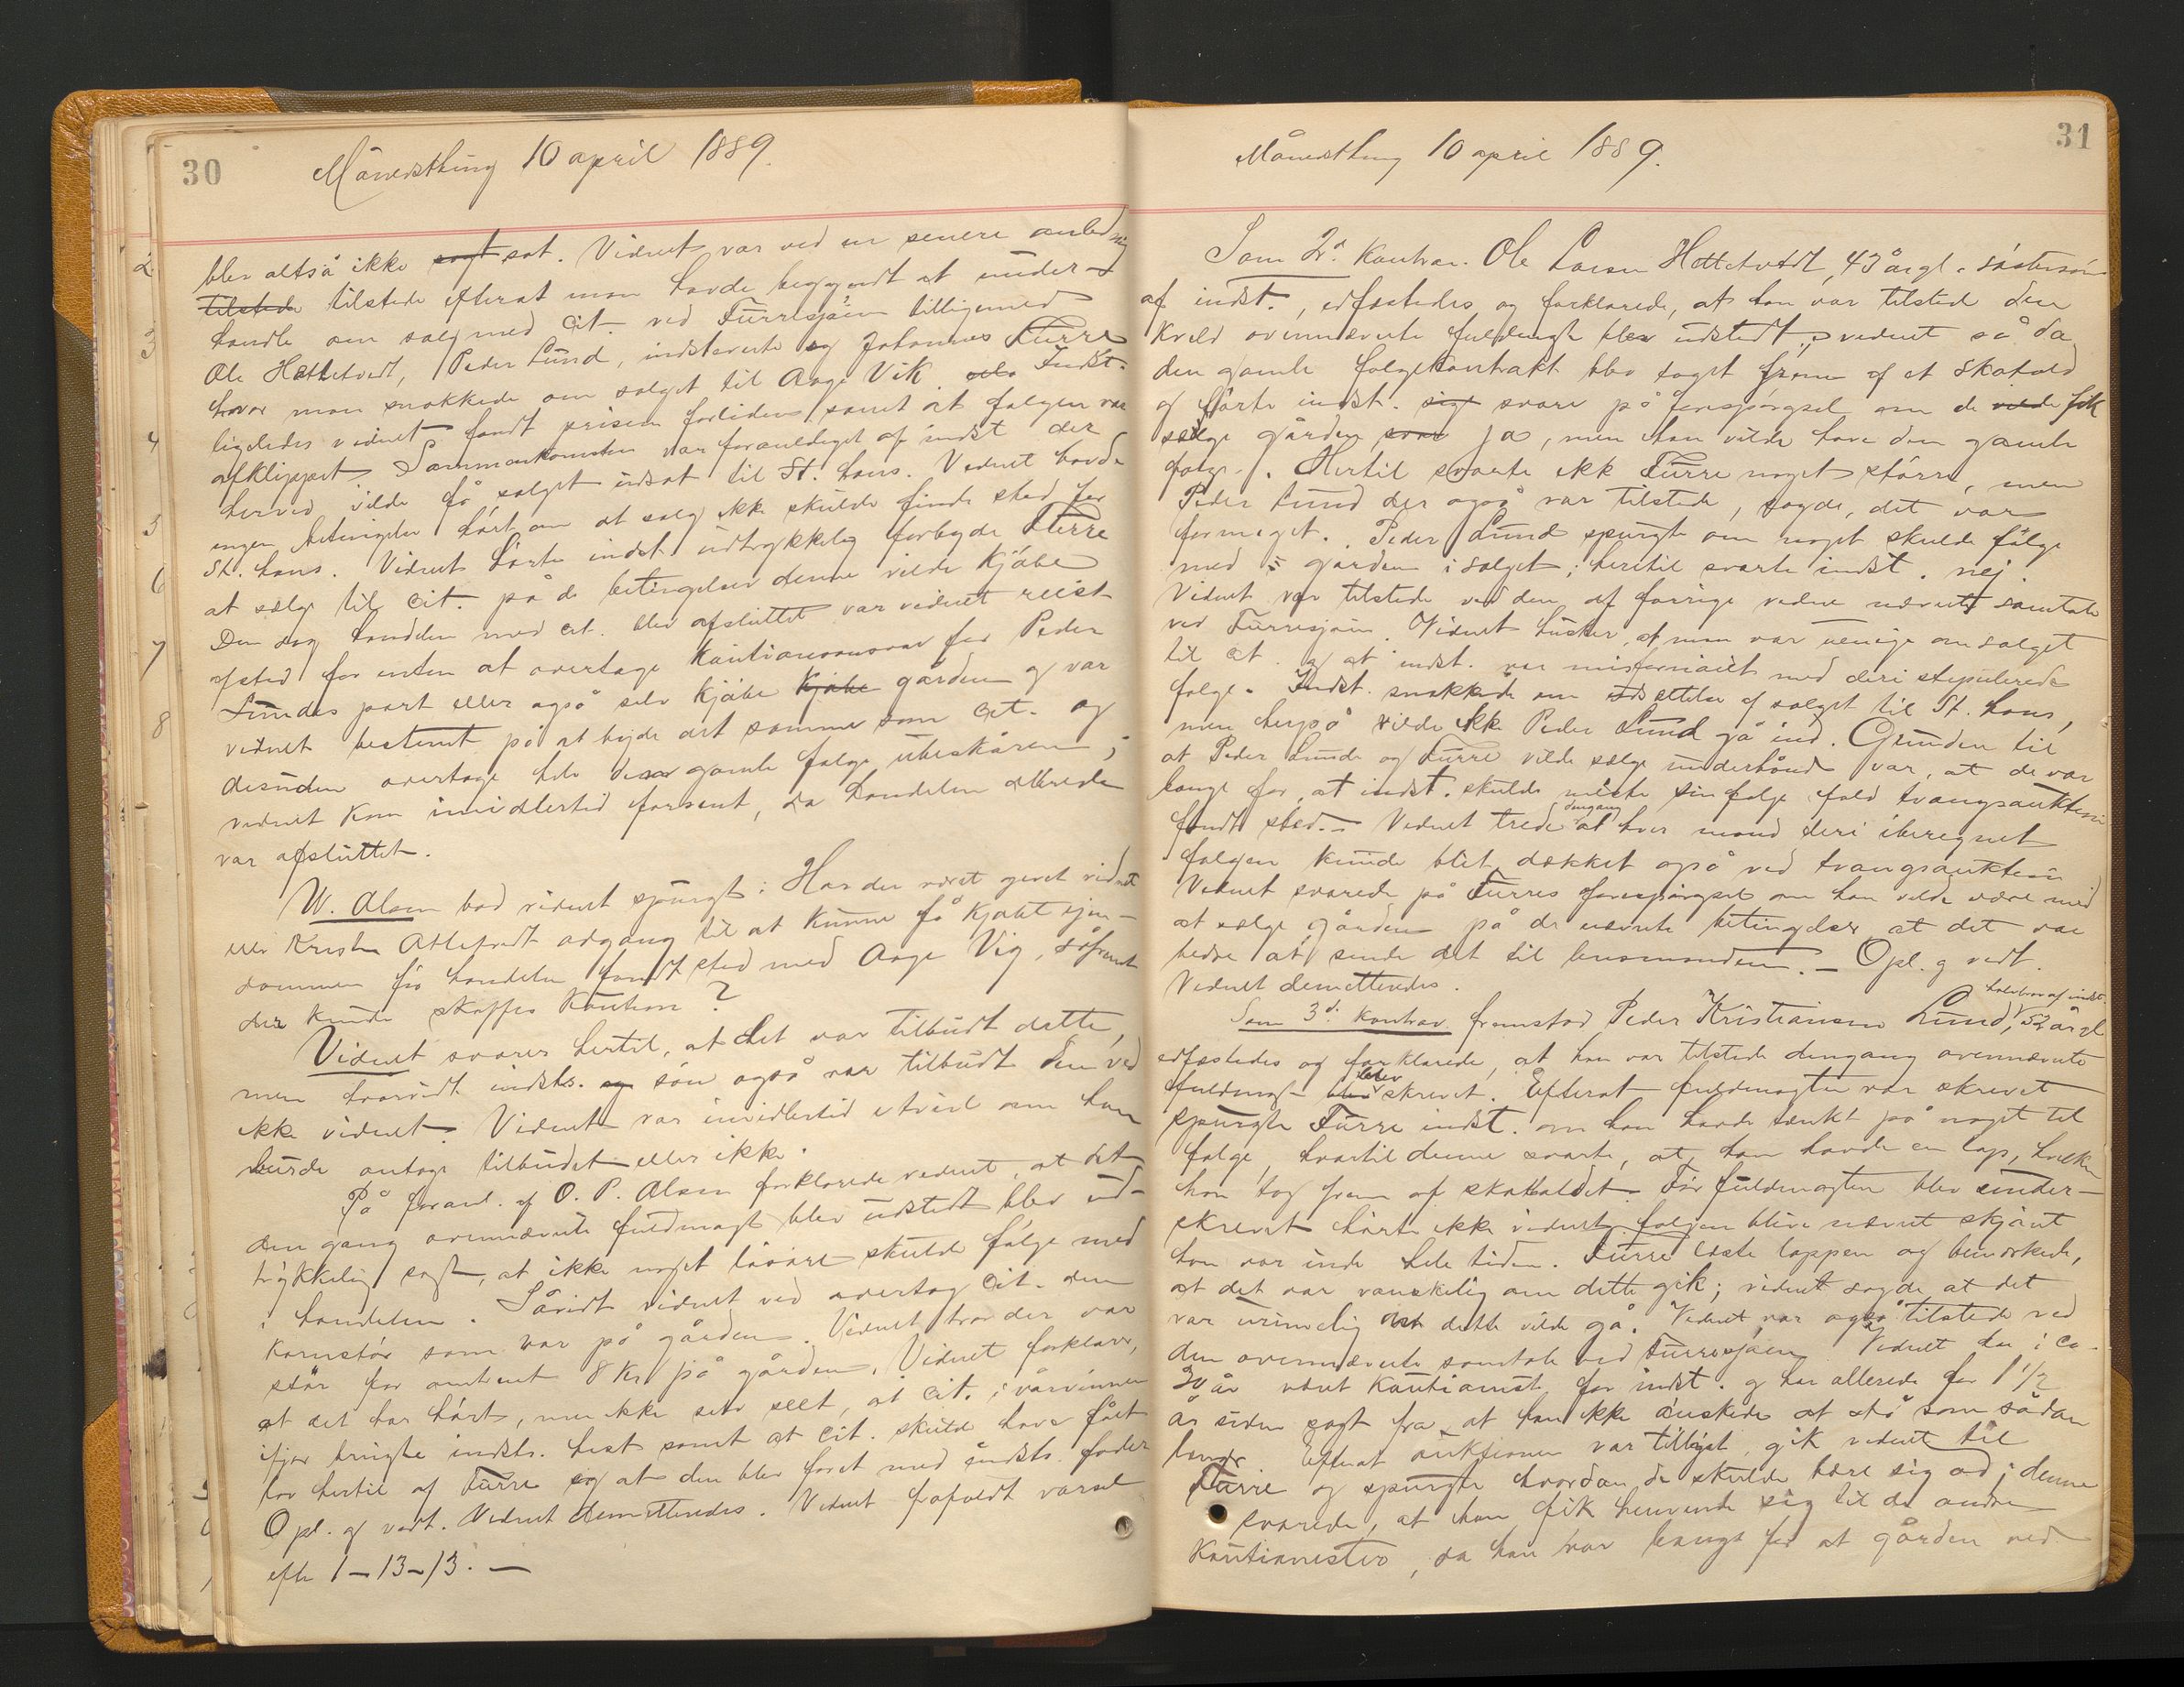 30
Månedsthing 10 april 1889.
blev altså ikke sagt sat. Vidnet var ved en senere anledning
tilstede tilstede efterat man havde begyndt at under-
handle om salg med cit. ved Furresjøen tilligemed
Ole Hettetvedt, Peder Lund, indstevnte og Johannes Furre
hvor man snakkede om salget til Aage Vik. Indst.
ligeledes vidnet fandt prisen forliden samt at folgen var
afklippet. Sammenkomsten var foranlediget af indst der
herved vilde få salget udsat til St. Hans. Vidnet havde
ingen betingelse hørt om at salg ikke skulde finde sted før
St. Hans. Vidnet hørte indst udtrykkelig forbyde Furre
at sælge til cit. på de betingelser denne vilde kjøbe
Den dag handelen med cit. blev afsluttet var vidnet reist
afsted for enten at overtage kautionsansvar for Peder
Lundes part eller også selv kjøbe kjøbe gården og var
vidnet bestemt på at byde det samme som cit. og
desuden overtage hele den gamle folge ubeskåren;
vidnet kom imidlertid forsent, da handelen allerede
var afsluttet.
W. Alsen bad vidnet spurgt: Har der været givet vidnet
eller Kristen adgang til at kunne få kjøbt ejen-
dommen før handelen fandt sted med Aage Vig, såfremt
der kunde skaffes kaution?
Vidnet svarer hertil, at det var tilbudt dette,
men hvorvidt indsts. og søn også var tilbudt den ved
ikke vidnet. Vidnet var imidlertid i tvivl om han
burde antage tilbudet eller ikke.
På foranl. af O. P. Alsen forklarede vidnet, at det
den gang ovennævnte fuldmagt blev udstedt blev ud-
trykkelig sagt, at ikke noget løsøre skulde følge med
i handelen. Såvidt vidnet ved overtog cit. den
kornstør som var på gården. Vidnet tror der var
stør for omtrent 8 kr på gården. Vidnet forklarer,
at det har hørt, men ikke selv seet, at cit. i vårvinnen
ifjor brugte indsts. hest samt at cit. skulde have fået
lov hertil af Furre og at den blev foret med indsts. foder
Opl. og vedt. Vidnet demitteredes. Vidnet frafaldt varsel
efter 1-13-13. —
31
Månedsthing 10 april 1889.
Som 2d. kontrav. Ole Larsen Hettetvedt, 43 årgl. søstersøn
af indst., edfæstedes og forklarede, at han var tilsted den
kveld ovennævnte fuldmagt blev udstedt; vidnet så da
den gamle folgekontrakt blev taget frem af et skatold
og hørte indst. sige svare på forespørgsel om de vilde fik
sælge gården svar ja, men han vilde have den gamle
folge. Hertil svarte ikk Furre noget større, men
Peder Lund der også var tilstede, sagde, det var
formeget. Peder Lund spurgte om noget skulde følge
med gården i salget; hertil svarte indst. nej.
Vidnet var tilstede ved den af forrige vidne nævnte samtale
ved Furresjøen. Vidnet husker, at man var uenige om salget
til cit. og at indst. var misfornøiet med deri stipulerede
folge. Indst. snakkede om udsættelse af salget til St. Hans,
men herpå vilde ikke Peder Lund gå ind. Grunden til
at Peder Lunde og Furre vilde sælge underhånd var, at de var
bange for, at indst. skulde miste sin folge ifald tvangsauktion
fandt sted. — Vidnet trode dengang at hver mand deri iberegnet
folgen kunde blit dækket også ved tvangsauktion
Vidnet svarede på Furres forespørgsel om han vilde være med
at sælge gården på de nævnte betingelser at det var
bedre at sende det til lensmanden. — Opl. og vedt.
Vidnet demitteredes.
Som 3d. kontrav. fremstod Peder Kristiansen Lund, halvbror af indst. 52 årgl
edfæstedes og forklarede, at han var tilstede dengang ovennævnte
fuldmagt blev blev skrevet. Efterat fuldmagten var skrevet
spurgte Furre indst. om han havde tænkt på noget til
folge, hvortil denne svarte, at han havde en lap, hvilken
han tog frem af skatholdet. Før fuldmagten blev under-
skrevet hørte ikke vidnet folgen blive nævnt skjønt
han var inde hele tiden. Furre læste lappen og bemærkede,
at det var vanskelig om dette gik; vidnet sagde at det
var urimelig at dette vilde gå. Vidnet var også tilstede ved
den ovennævnte samtale ved Furresjøen. Vidnet har i ca.
20 år været kautionist for indst. og har allerede for 1 1/2
år siden sagt fra at han ikke ønskede at stå som sådan
længer. Efterat auktionen var tillyst gik vidnet til
Furre og spurgte hvordan de skulde bære sig ad; denne
svarede, at han fik henvende sig til de andre
kautionister, da han var bange for at gården ved